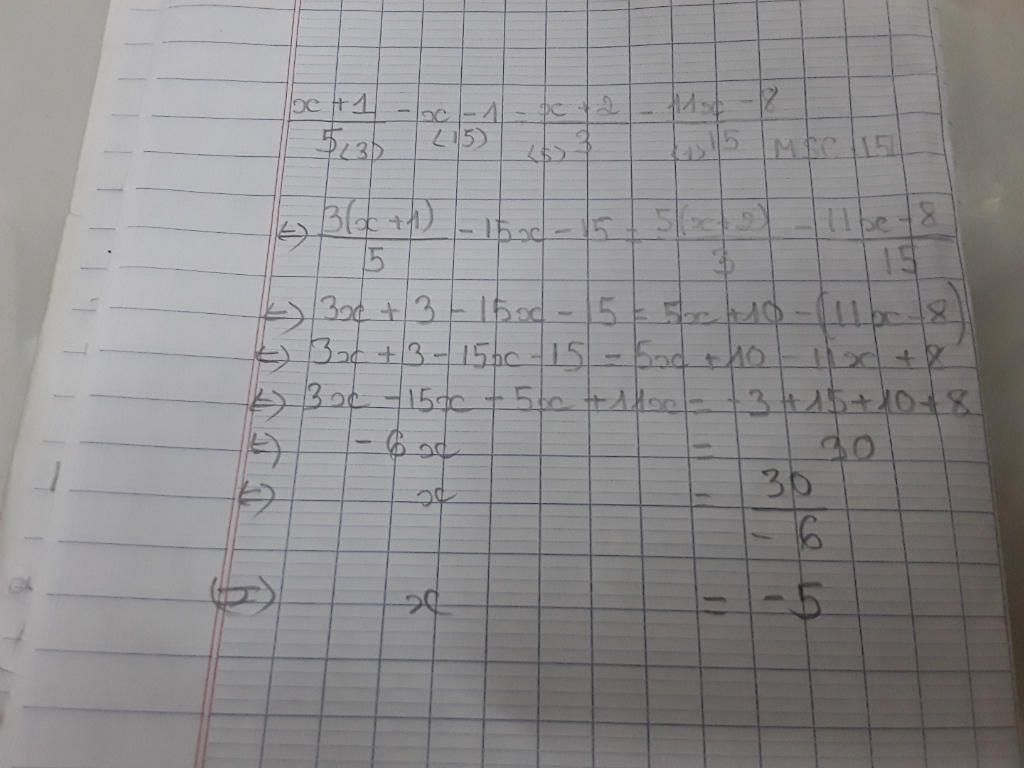 x + 1 / 5 - x - 1 = x + 2 / 3 - 11x - 8 / 15
(3) (15) (5) (1) MSC 15
<=> 3(x + 1) / 5 - 15x - 15 = 5(x + 2) / 3 - 11x - 8 / 15
<=> 3x + 3 - 15x - 15 = 5x + 10 - (11x - 8)
<=> 3x + 3 - 15x - 15 = 5x + 10 - 11x + 8
<=> 3x - 15x - 5x + 11x = -3 + 15 + 10 + 8
<=> -6x = 30
<=> x = 30 / -6
<=> x = -5